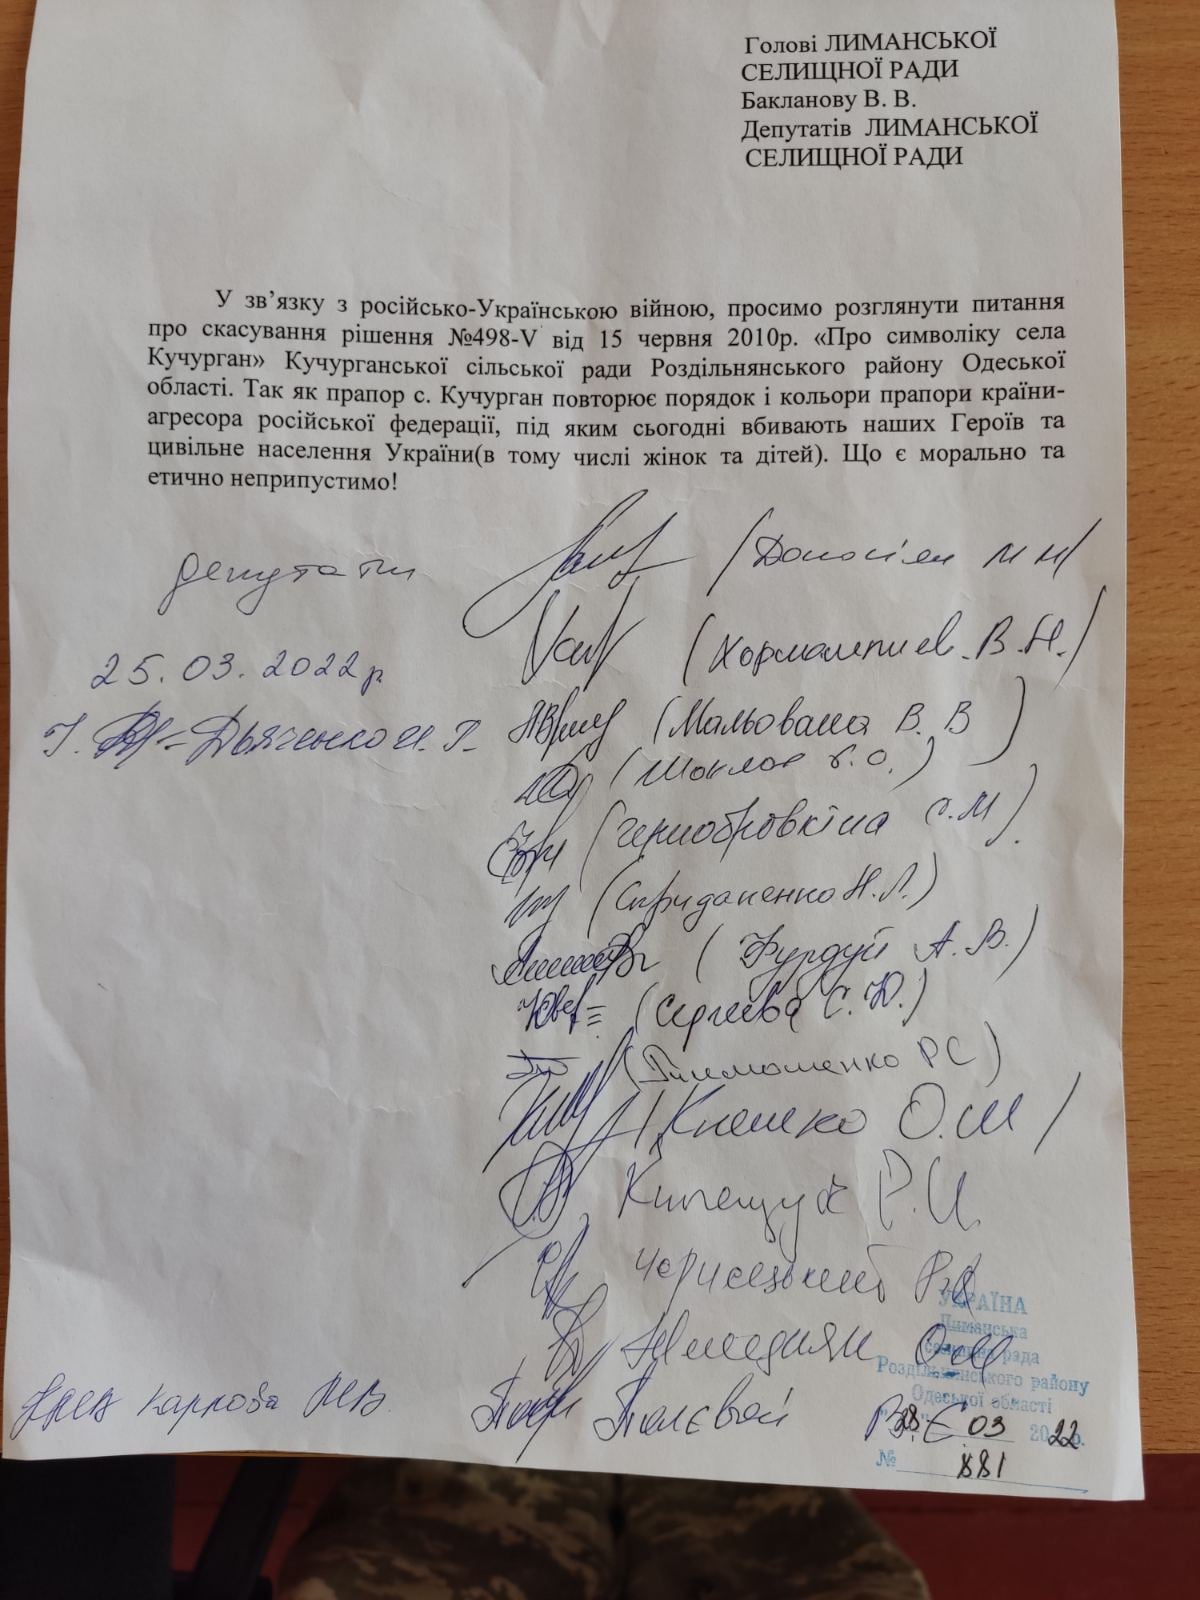 Голові ЛИМАНСЬКОЇ
СЕЛИЩНОЇ РАДИ
Бакланову В. В.
Депутатів ЛИМАНСЬКОЇ
СЕЛИЩНОЇ РАДИ
У зв’язку з російсько-Українською війною, просимо розглянути питання
про скасування рішення №498-V від 15 червня 2010р. «Про символіку села
Кучурган» Кучурганської сільської ради Роздільнянського району Одеської
області. Так як прапор с. Кучурган повторює порядок і кольори прапори країни-
агресора російської федерації, під яким сьогодні вбивають наших Героїв та
цивільне населення України(в тому числі жінок та дітей). Що є морально та
етично неприпустимо!
депутати
25.03.2022р.
Дьяченко И. Г.
(Мальована В. В)
(Чернобровкіна С.М)
(Фурдуй А. В.)
(Сергеева С. Ю.)
(Тимошенко РС)
О.М
Р.И.
О М
Карпова М.В.
Полєвой В. Є
УКРАЇНА
Лиманська
селищна рада
Роздільнянського району
Одеської області
"28" 03 2022р.
№ 881